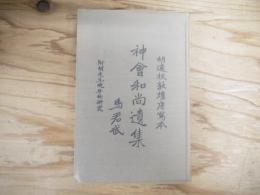 胡適校敦煌唐寫本
神會和尚遺集
附胡先生晚年的研究
馬君武